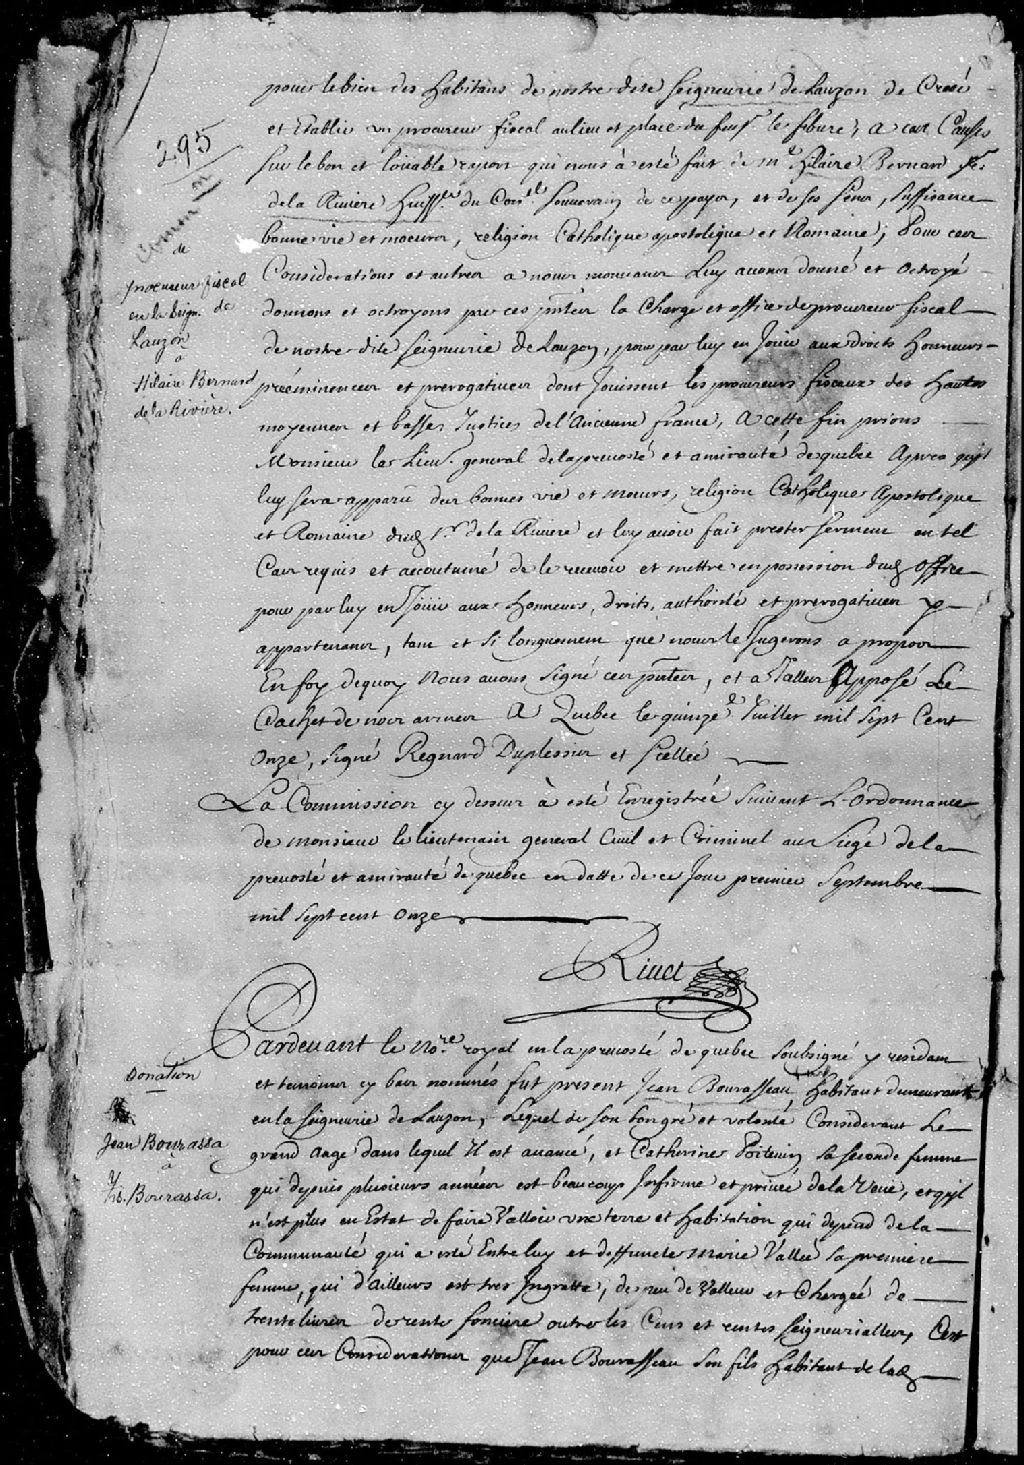 pour le bien des habitans de nostre dite Seigneurie de Lauzon de Creér
et Etablir un procureur fiscal au lieu et place du feu Sr le febure, a ces Causes
sur le bon et loüable raport qui nous à esté fait de Me hilaire Bernard Sr
de la Riviere huissier du Conel Souverain de ce payis, et de ses sens, suffisance
bonne vie et moeurs, religion Catholique apostolique et Romaine; Pour ces
Considerations et autres a nous mouvans Luy avons donné et octroyé
donnons et octroyons par ces pntes la Charge et office de procureur fiscal
de nostre dite Seigneurie de Lauzon, pour par luy en Joüir aux droits honneurs
préeminences et prerogatives dont Joüissent les procureurs fiscaux des hautes
moyennes et basses Justices de l'Ancienne france, A cette fin prions
Monsieur le Lieut. general de la prevosté et amirauté de quebec Apres qu'il
luy sera apparu des bonnes vie et moeurs, religion Catholique Apostolique
et Romaine dud Sr de la Riviere et luy avoir fait prester serment en tel
Cas requis et accoutumé de le recevoir et mettre en possession dud office
pour par luy en Joüir aux honneurs, droits, authorité et prerogatives y
appartenans, tant et si longuement que nous le Jugerons a propos
En foy dequoy Nous avons signé ces pntes, et a Icelles Apposé Le
Cachet de nos armes A Quebec le quinze Juillet mil sept Cent
onze, signé Regnard Duplessis et scellée
La Commission cy dessus à esté Enregistrée suivant L'ordonnance
de monsieur le lieutenant general Civil et Criminel au Siege de la
prevosté et amirauté de quebec en datte de ce Jour premier Septembre
mil sept cent onze
Rivet
Pardevant le nore royal en la prevosté de quebec soubsigné y residant
et temoins cy bas nommés fut present Jean Bourasseau, habitant demeurant
en la Seigneurie de Lauzon, Lequel de son bon gré et volonté, Considerant Le
grand aage dans lequel Il est avancé, et Catherine Poitevin sa seconde femme
qui depuis plusieurs années est beaucoup Infirme et privée de la Veüe, et qu'il
n'est plus en Estat de faire Valloir une terre et habitation qui depend de la
Communauté qui a esté Entre luy et deffuncte Marie Vallée sa premiere
femme, qui d'ailleurs est tres Ingratte, de peu de Valleur et Chargée de
trente livres de rente fonciere outre les Cens et rentes Seigneurialles, C'est
pour ces Considerations que Jean Bourasseau son fils habitant de lad
295
Commion
de
procureur fiscal
en la Seign. de
Lauzon
a
Hilaire Bernard
de la Rivière.
Donation
Jean Bourassa
à
Bourassa.